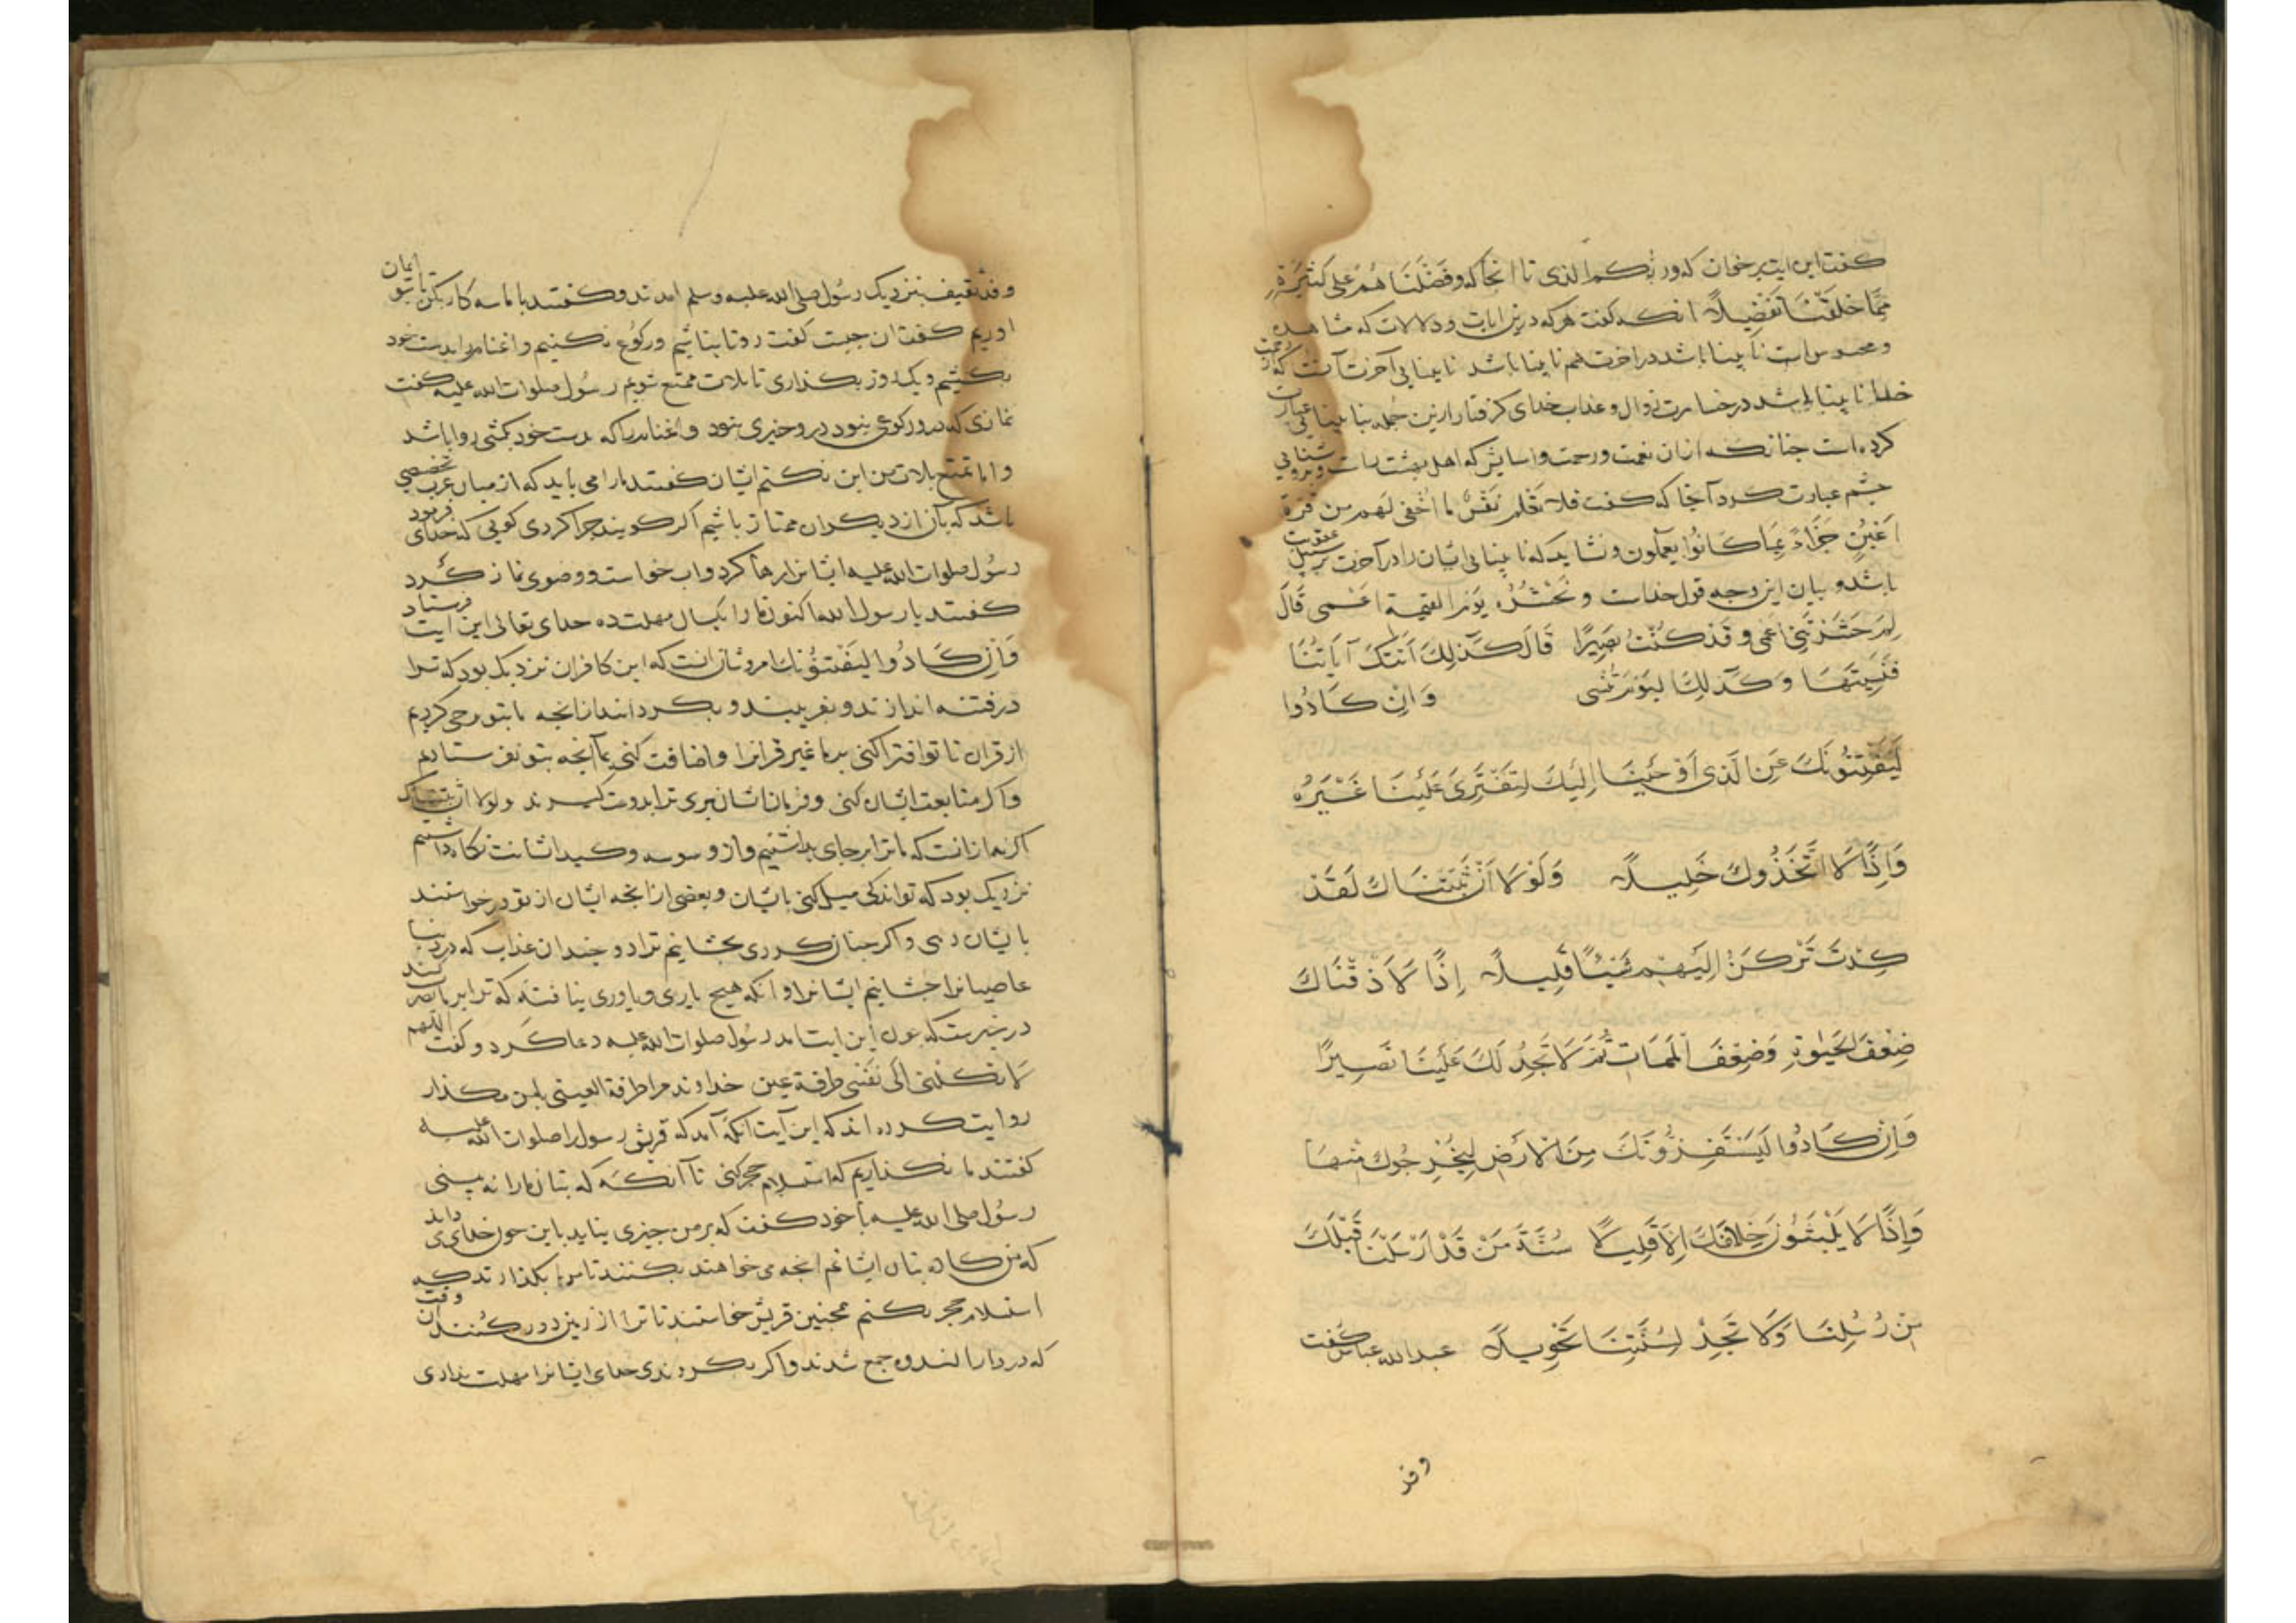 كفت این ایت برخوان که ور بكم الذی تا انجا که وفضلناهم علی کثیرة
مما خلقنا تفضیلا انکه کفت هرکه درین ایات و دلالات که مشاهده
و محسوس است نابینا باشد در اخرت هم نابینا باشد نابینایی آخرت آنست که از رحمت
خدا نابینا باشد در خسارت زوال و عذاب خدای کرفتار ازین جمله بنابینایی عبارت
کرده است جنانکه از ان نعمت و رحمت و اسایش که اهل بهشت راست بروشنایی
جشم عبارت کرد آنجا که کفت فلا تعلم نفس ما اخفی لهم من قرة
اعین جزاء بما کانوا یعملون و نشاید که نابینایی ایشان را در آخرت بر سبیل عقوبت
باشد و بیان این وجه قول خداست و نحشره یوم القیمة اعمی قال
لم حشرتنی اعمی و قد کنت بصیرا قال کذلك اتتك آیاتنا
فنسیتها وکذلك الیوم تنسی وان کادوا
لَیَفْتِنُونَكَ عَنِ الَّذی اَوْحَیْنَا اِلَیْكَ لِتَفْتَرِیَ عَلَیْنَا غَیْرَهُ
وَاِذًا لَاتَّخَذُوكَ خَلِیلًا وَلَوْلَا اَنْ ثَبَّتْنَاكَ لَقَدْ
کِدْتَ تَرْکَنُ اِلَیْهِمْ شَیْئًا قَلِیلًا اِذًا لَاَذَقْنَاكَ
ضِعْفَ الْحَیٰوةِ وَضِعْفَ الْمَمَاتِ ثُمَّ لَا تَجِدُ لَكَ عَلَیْنَا نَصِیرًا
وَاِنْ کَادُوا لَیَسْتَفِزُّونَكَ مِنَ الْاَرْضِ لِیُخْرِجُوكَ مِنْهَا
وَاِذًا لَا یَلْبَثُونَ خِلَافَكَ اِلَّا قَلِیلًا سُنَّةَ مَنْ قَدْ اَرْسَلْنَا قَبْلَكَ
مِنْ رُسُلِنَا وَلَا تَجِدُ لِسُنَّتِنَا تَحْوِیلًا عبدالله عباس کفت
وفد
وفد ثقیف بنزدیک رسول صلی الله علیه وسلم امدند و کفتند با ما سه کار بکن تا بتو ایمان
اوریم کفت ان جیست کفت روتا بنمائیم و رکوع نکنیم و اصنام را بدست خود
نکشیم و یک روز بکذاری تا بلات ممتع شویم رسول صلوات الله علیه کفت
نمازی که درو رکوع نبود درو خیری نبود و اصنام را که بدست خود نکشی روا باشد
و اما تمتع بلات من این نکنم ایشان کفتند ما را می باید که از میان عرب تخصیصی
باشد که بآن از دیکران ممتاز باشیم اکر کویند جرا کردی کویی که خدای فرمود
رسول صلوات الله علیه ایشانرا رها کرد و اب خواست و وضوی نماز کرد
کفتند یا رسول الله اکنون ما را یکسال مهلت ده خدای تعالی این ایت فرستاد
وَاِنْ کَادُوا لَیَفْتِنُونَكَ امر و شان انست که این کافران نزدیک بود که ترا
در فتنه اندازند و بفریبند و بکردانند از انجه ما بتو وحی کردیم
از قران تا تو افترا کنی برما غیر قرانرا و اضافت کنی بما آنجه بتو نفرستادیم
و اکر متابعت ایشان کنی و فرمان ایشان بری ترا بدوست کیرند ولولا ان ثبتناك
اکرنه ازانست که ما ترا برجای بداشتیم و از وسوسه و کید ایشانت نکاه داشتیم
نزدیک بود که تو اندکی میل کنی بایشان و بعضی از انجه ایشان از تو درخواستند
بایشان دهی و اکر جنان کردی بجشانیم ترا دو جندان عذاب که در دنیا
عاصیانرا جشانیم ایشانرا و انکه هیج یاری و یاوری نیافته که ترا بر ما نصر کند
در خبرست که جون این ایت امد رسول صلوات الله علیه دعا کرد و کفت اللهم
لا تکلنی الی نفسی طرفة عین خداوندا مرا طرفة العینی بمن مکذار
روایت کرده اند که این آیت انکه آمد که قریش رسول را صلوات الله علیه
کفتند ما نکذاریم که استلام حجر کنی تا آنکه که بتان ما را نه بینی
رسول صلی الله علیه با خود کفت که بر من جیزی نیاید باین جون خدای داند
که من کاره بتان ایشانم انجه می خواهند بکنند تا مرا بکذارند که
استلام حجر بکنم همجنین قریش خواستند تا ترا از زمین دور کنند ان وقت
که در دار الندوه جمع شدند و اکر بکردندی خدای ایشانرا مهلت ندادی